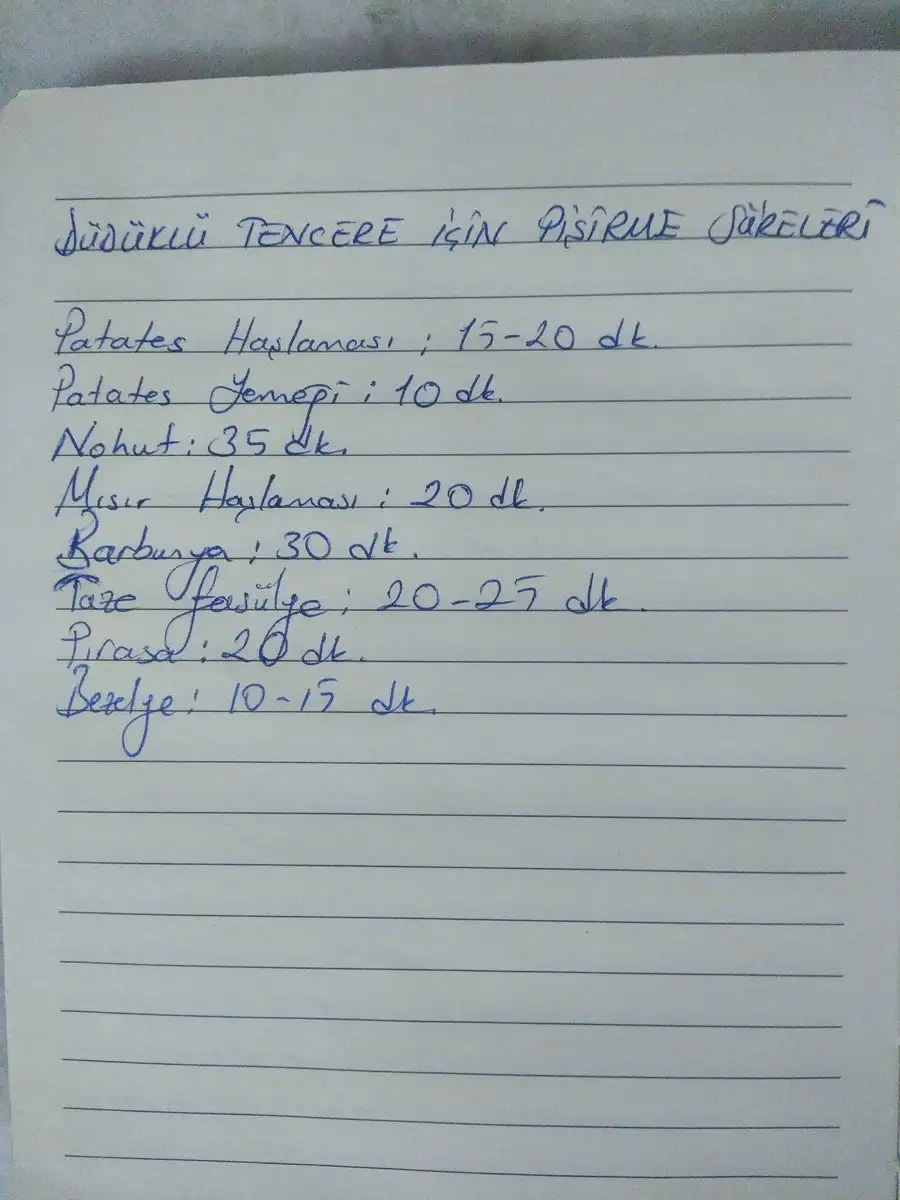 DÜDÜKLÜ TENCERE İÇİN PİŞİRME SÜRELERİ
Patates Haşlaması : 15-20 dk.
Patates Yemeği : 10 dk.
Nohut : 35 dk.
Mısır Haşlaması : 20 dk.
Barbunya : 30 dk.
Taze fasülye : 20-25 dk.
Pırasa : 20 dk.
Bezelye : 10-15 dk.